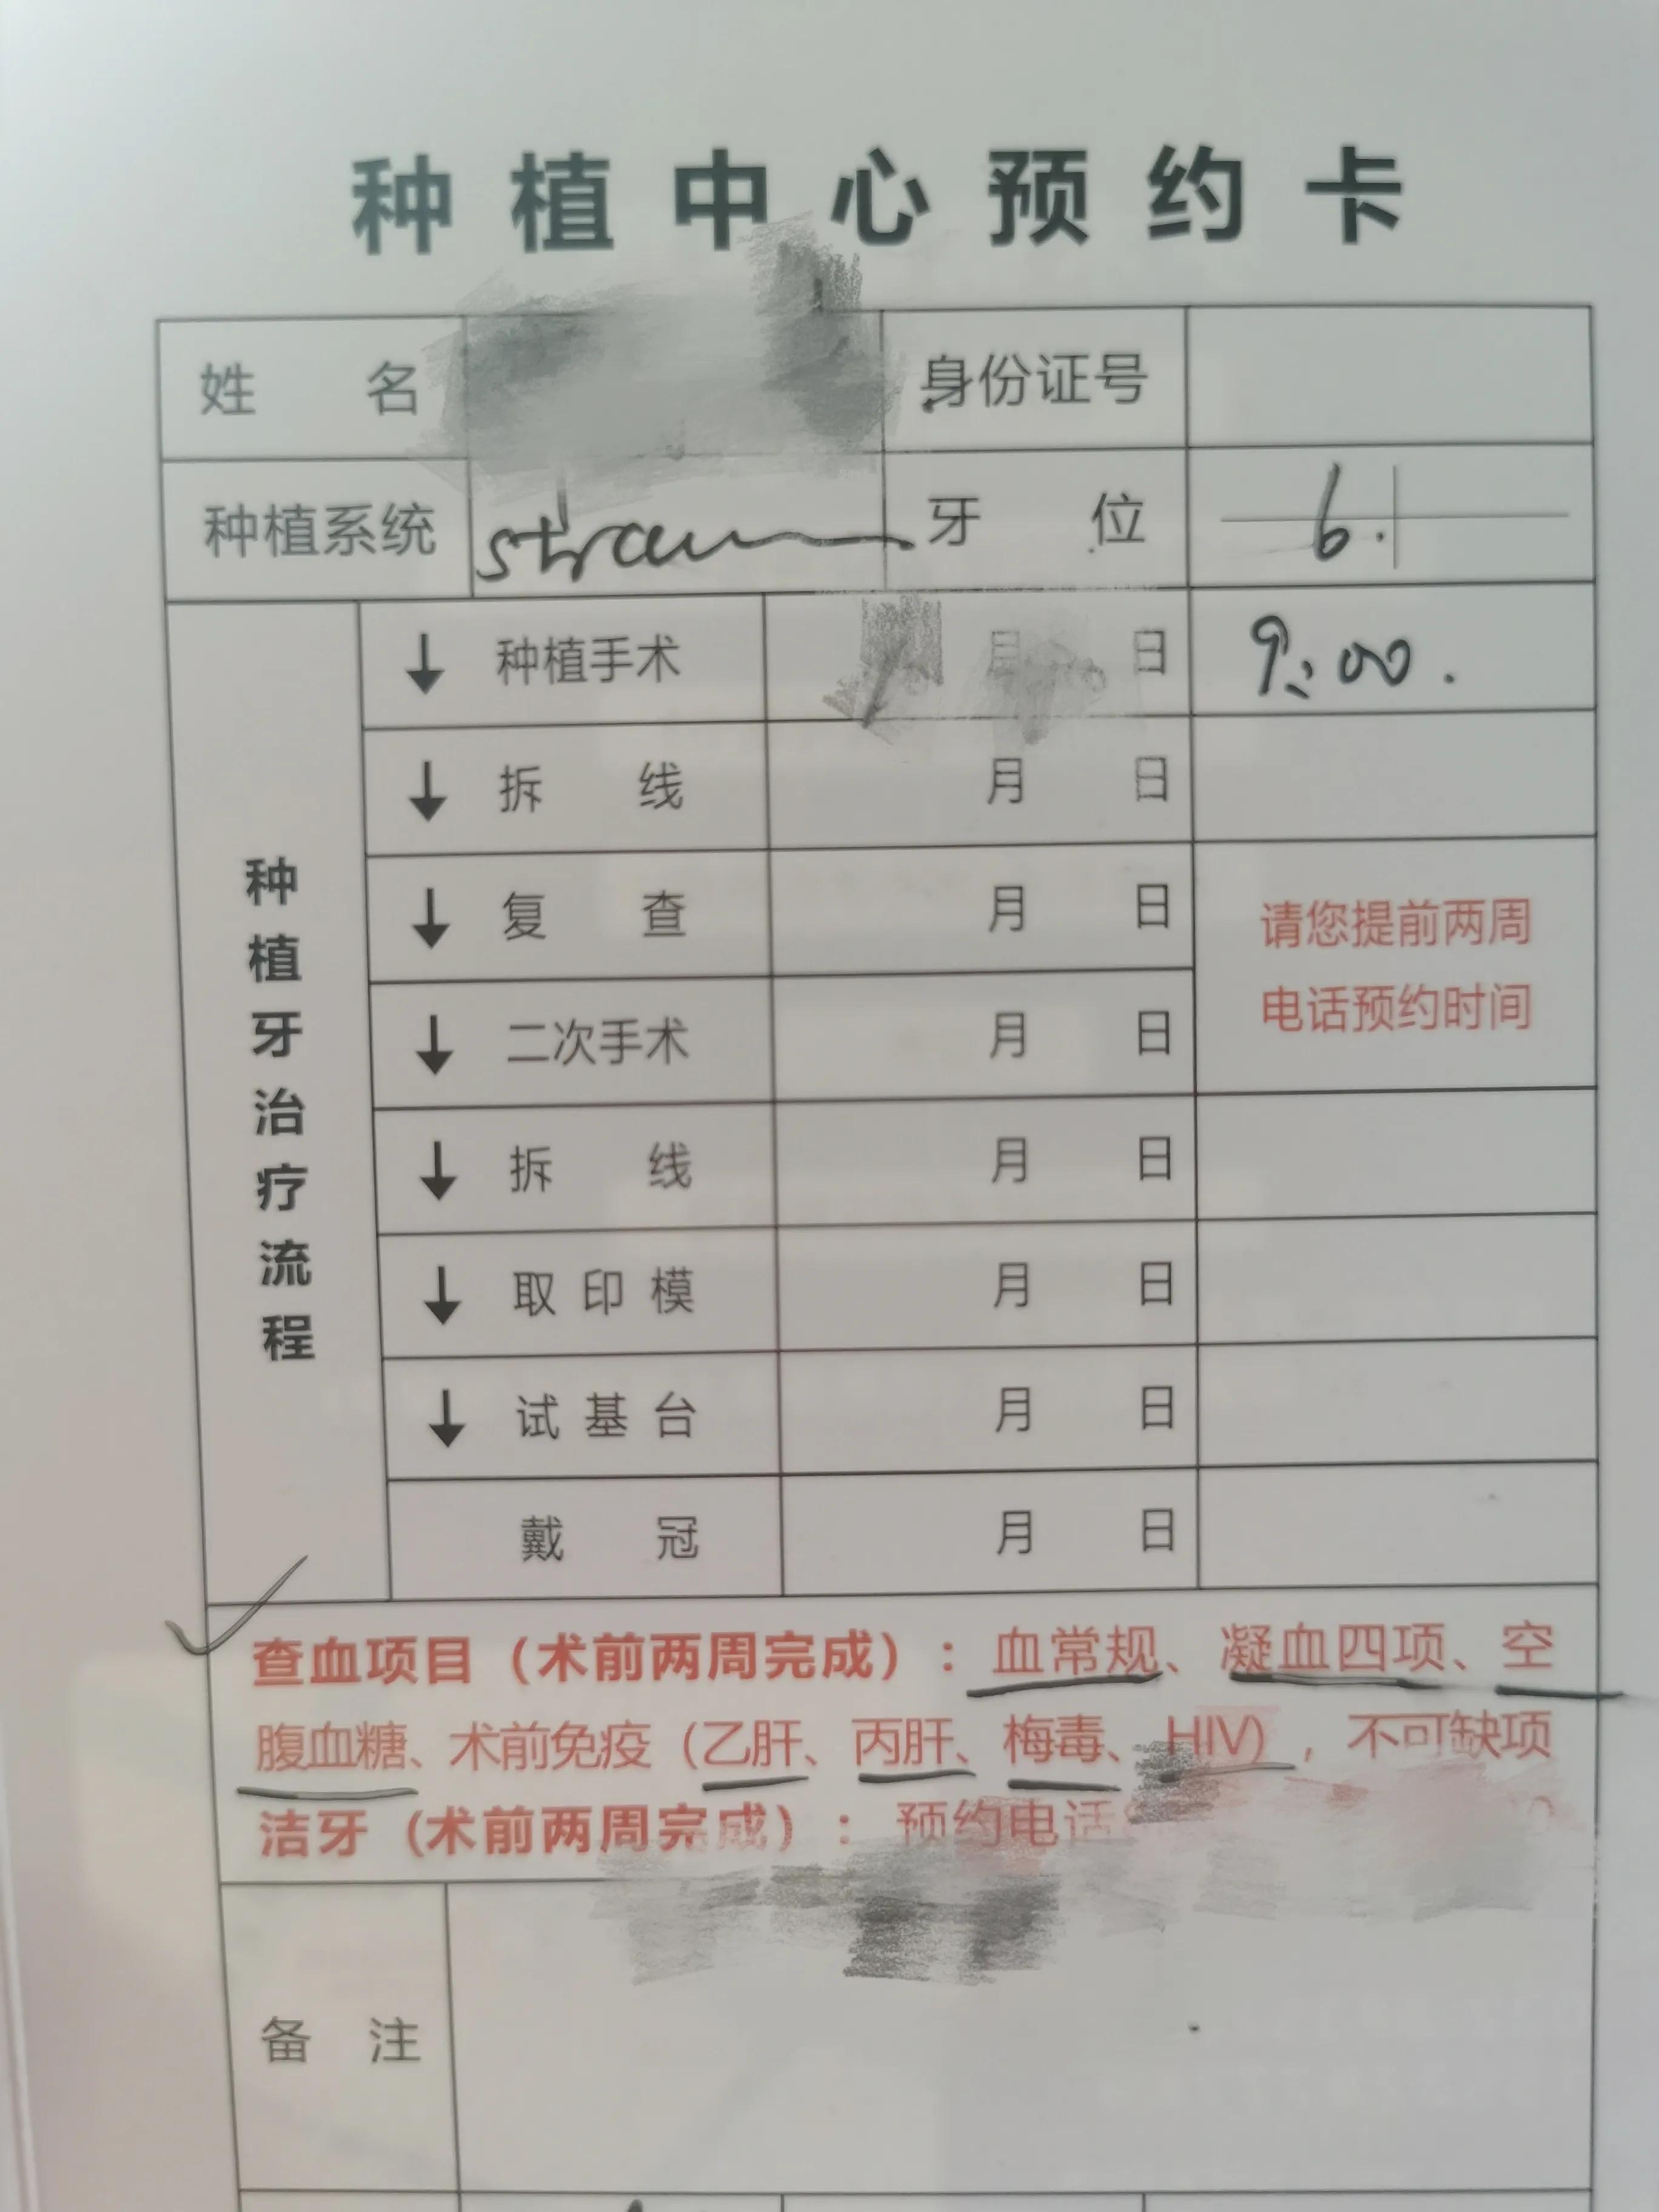 种植中心预约卡
姓名 身份证号
种植系统 牙位 6.
种植牙治疗流程
↓ 种植手术 月 日 9:00.
↓ 拆线 月 日
↓ 复查 月 日 请您提前两周
↓ 二次手术 月 日 电话预约时间
↓ 拆线 月 日
↓ 取印模 月 日
↓ 试基台 月 日
戴冠 月 日
查血项目（术前两周完成）：血常规、凝血四项、空
腹血糖、术前免疫（乙肝、丙肝、梅毒、HIV），不可缺项
洁牙（术前两周完成）：预约电话
备注